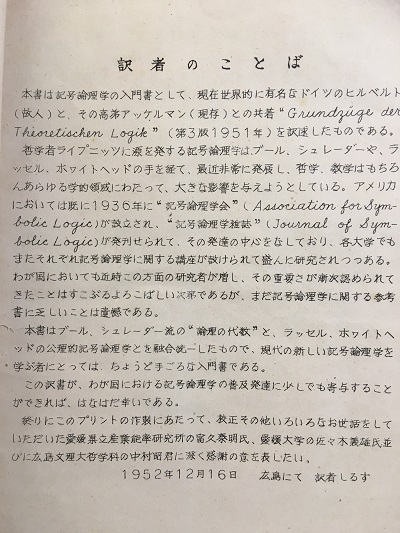 訳者のことば
本書は記号論理学の入門書として、現在世界的に有名なドイツのヒルベルト
(故人)と、その高弟アッケルマン(現存)との共著“Grundzüge der
Theoretischen Logik”(第3版1951年)を訳述したものである。
哲学者ライプニッツに源を発する記号論理学はブール、シュレーダーや、ラ
ッセル、ホワイトヘッドの手を経て、最近非常に発展し、哲学、数学はもちろ
んあらゆる学的領域にわたって、大きな影響を与えようとしている。アメリカ
においては既に1936年に“記号論理学会”(Association for Sym-
bolic Logic)が設立され、“記号論理学雑誌”(Journal of Sym-
bolic Logic)が発刊せられて、その発達の中心をなしており、各大学でも
またそれぞれ記号論理学に関する講座が設けられて盛んに研究されつつある。
わが国においても近時この方面の研究者が増し、その重要さが漸次認められて
きたことはすこぶるよろこばしい次第であるが、まだ記号論理学に関する参考
書に乏しいことは遺憾である。
本書はブール、シュレーダー流の“論理の代数”と、ラッセル、ホワイトヘ
ッドの公理的記号論理学とを融合統一したもので、現代の新しい記号論理学を
学ぶ者にとっては、ちょうど手ごろな入門書である。
この訳書が、わが国における記号論理学の普及発達に少しでも寄与すること
ができれば、はなはだ幸いである。
終りにこのプリントの作製にあたって、校正その他いろいろなお世話をして
いただいた愛媛県立産業能率研究所の富久泰明氏、愛媛大学の佐々木義雄氏並
びに広島文理大哲学科の中村昭君に深く感謝の意を表したい。
1952年12月16日 広島にて 訳者しるす